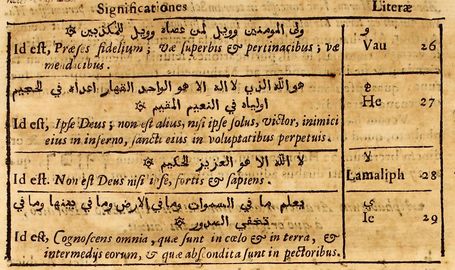 Significationes Literæ
ولى المومنين وويل لمن عصاه وويل للمكذبين و
Id est, Præses fidelium; væ superbis & pertinacibus; væ Vau 26
mendacibus.
هو الله الذي لا اله الا هو الواحد القهار اعداه في الجحيم ه
اولياه في النعيم المقيم He 27
Id est, Ipse Deus; non est alius, nisi ipse solus, victor, inimici
eius in inferno, sancti eius in voluptatibus perpetuis.
لا الله الا هو العزيز الحكيم لا
Id est. Non est Deus nisi ipse, fortis & sapiens. Lamaliph 28
يعلم ما في السموات وما في الارض وما في بينها وما في ي
تخفي الصدور Ie 29
Id est, Cognoscens omnia, quæ sunt in cœlo & in terra, &
intermedys eorum, & quæ abscondita sunt in pectoribus.